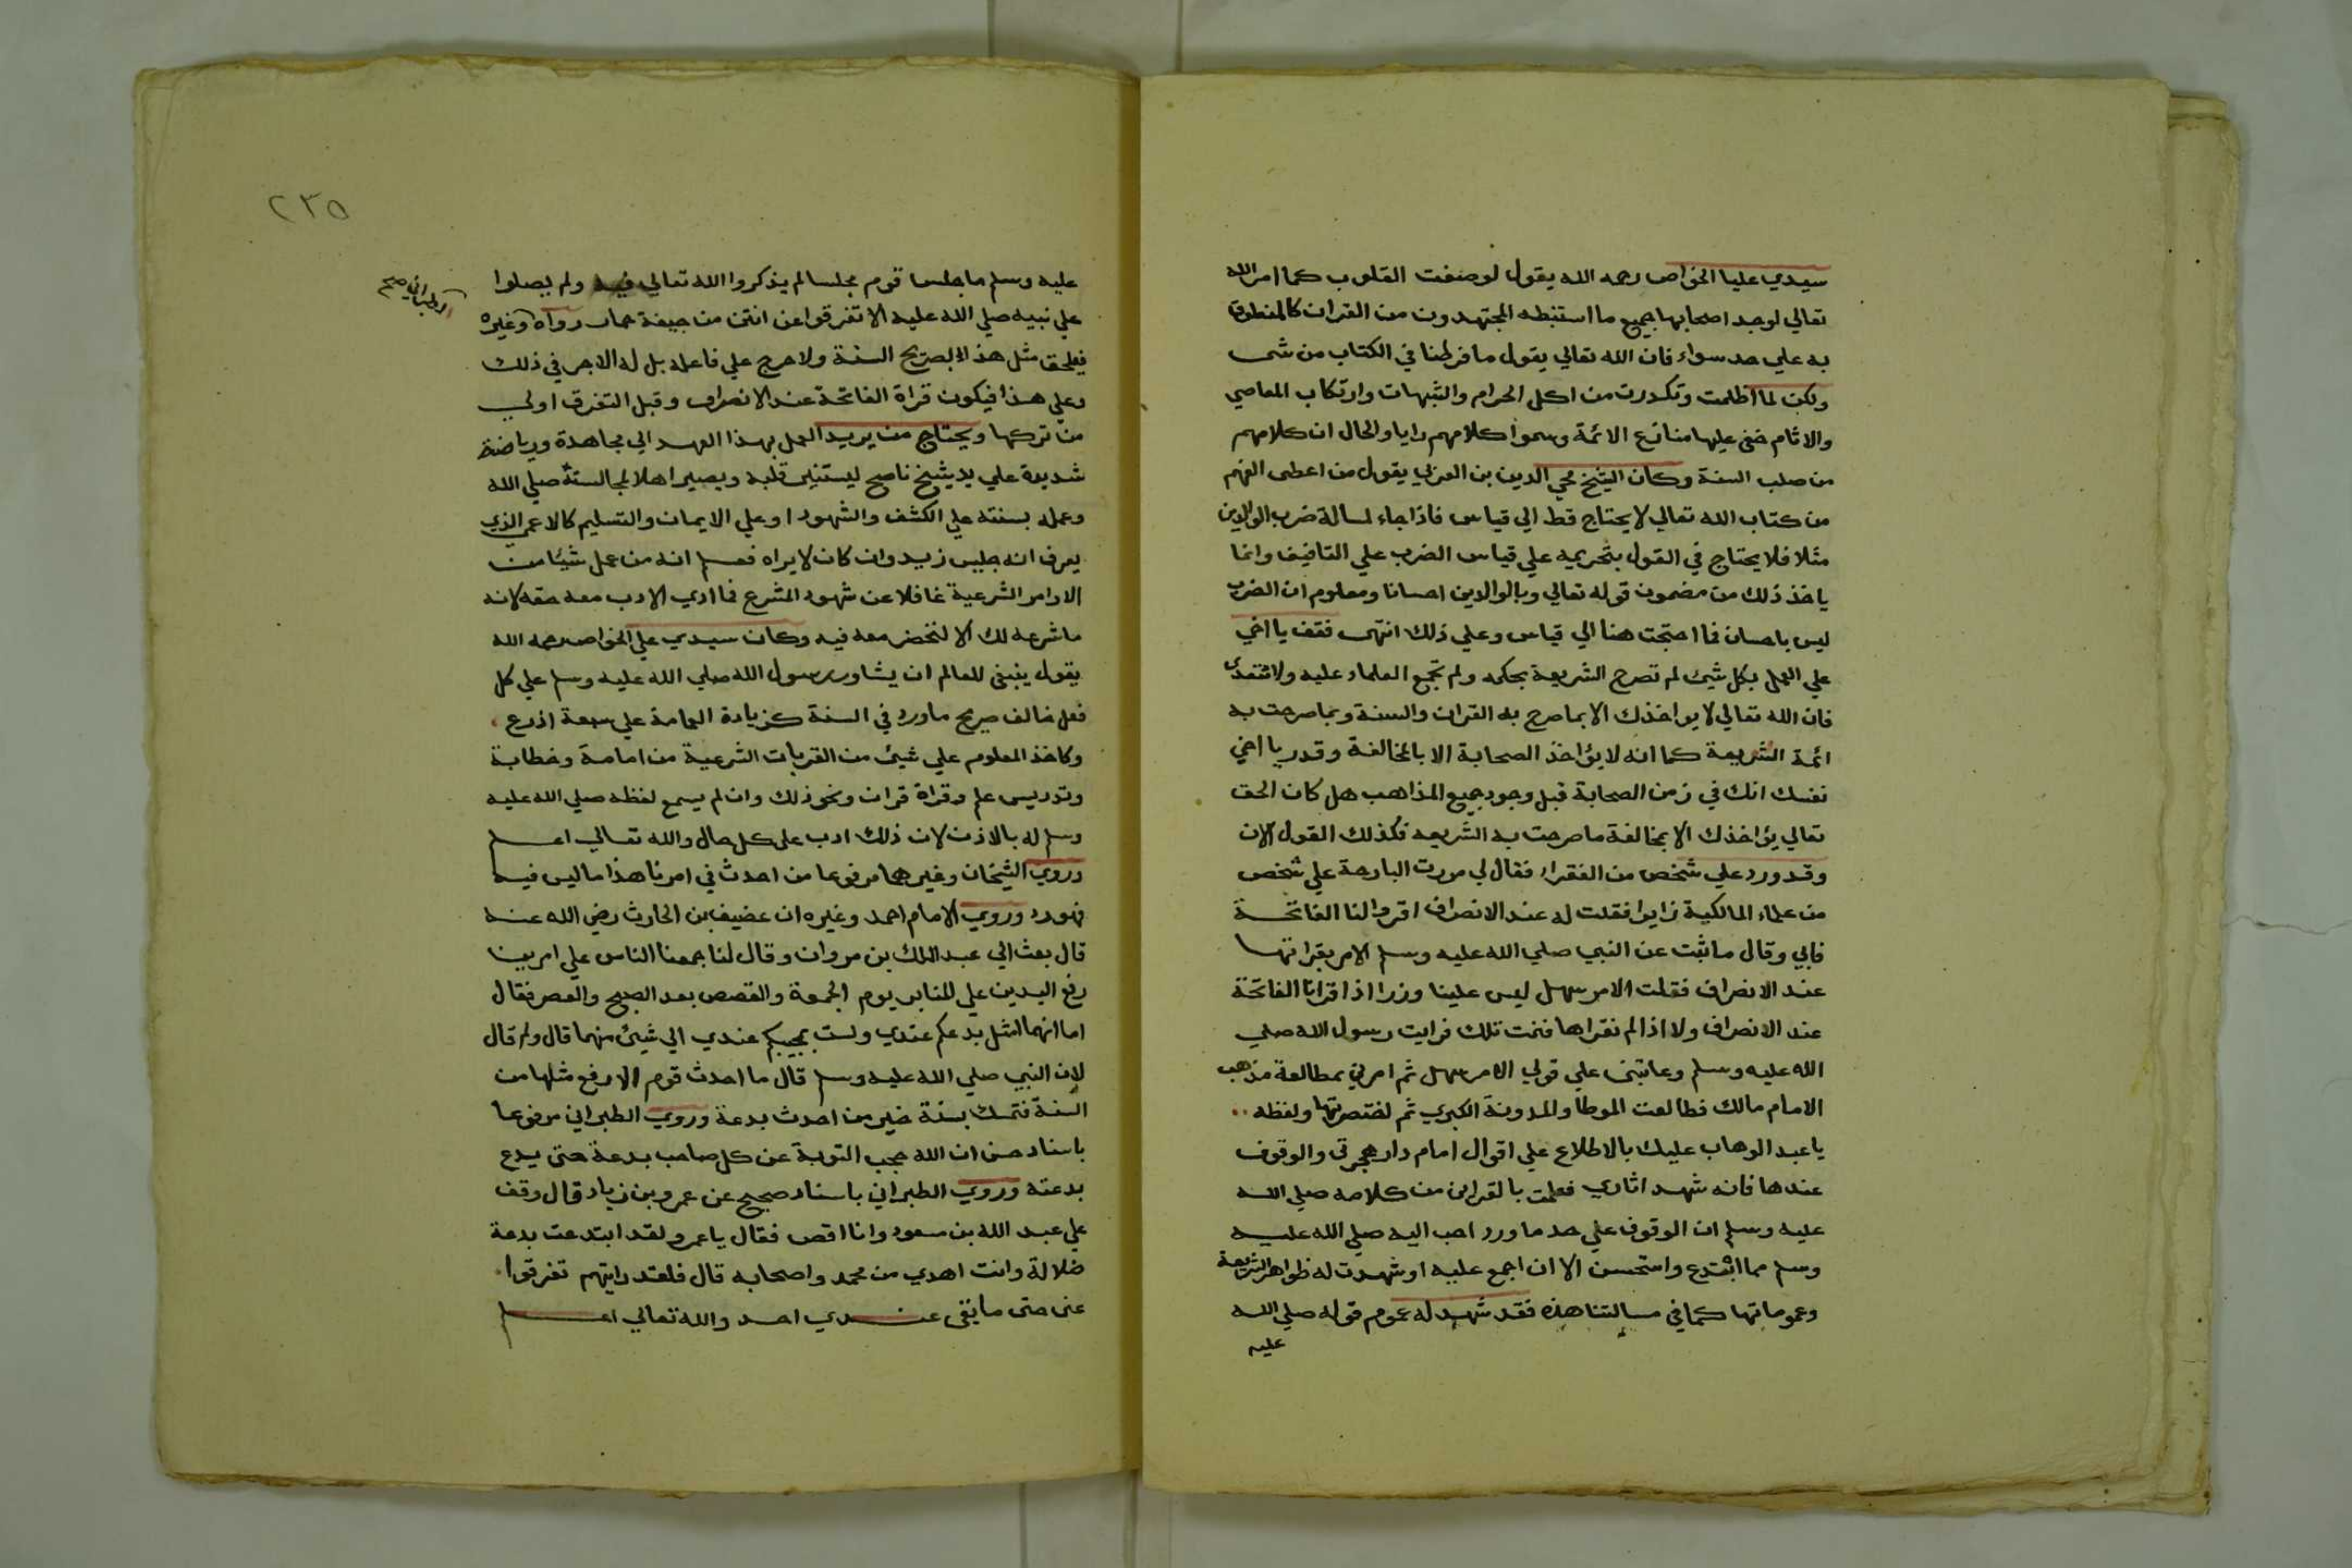 سيدي عليا الخواص رحمه الله يقول لوصفت القلوب كما امر الله
تعالي لوجد اصحابها جميع ما استنبطه المجتهدون من القران كالمنطوق
به علي حد سواء فان الله تعالي يقول ما فرطنا في الكتاب من شي
ولكن لما اظلمت وتكدرت من اكل الحرام والشبهات وارتكاب المعاصي
والاثام خفي عليها منازع الائمة وسموا كلامهم رايا والحال ان كلامهم
من صلب السنة وكان الشيخ محيي الدين بن العربي يقول من اعطي الفهم
من كتاب الله تعالي لا يحتاج قط الي قياس فاذا جاء لمسالة ضرب الوالدين
مثلا فلا يحتاج في القول بتحريمه علي قياس الضرب علي التافيف وانما
ياخذ ذلك من مضمون قوله تعالي وبالوالدين احسانا ومعلوم ان الضرب
ليس باحسان فما احتجت هنا الي قياس وعلي ذلك انتهى فقف يا اخي
علي العمل بكل شيئ لم تصرح الشريعة بحكمه ولم تجمع العلماء عليه ولا تتعدى
فان الله تعالي لا يواخذك الا بما صرح به القران والسنة وبما صرحت به
ائمة الشريعة كما انه لا يؤاخذ الصحابة الا بالمخالفة وقدر يا اخي
نفسك انك في زمن الصحابة قبل وجود جميع المذاهب هل كان الحق
تعالي يؤاخذك الا بمخالفة ما صرحت به الشريعه فكذلك القول الان
وقد ورد علي شخص من الفقراء فقال لي مررت البارحة علي شخص
من علماء المالكية زايرا فقلت له عند الانصراف اقروا لنا الفاتحة
فابي وقال ما ثبت عن النبي صلي الله عليه وسلم الامر بقراتها
عند الانصراف فقلت الامر سهل ليس علينا وزر اذا قرانا الفاتحة
عند الانصراف ولا اذا لم نقراها فنمت تلك فرايت رسول الله صلي
الله عليه وسلم وعاتبني علي قولي الامر سهل ثم امرني بمطالعة مذهب
الامام مالك فطالعت الموطا والمدونة الكبري ثم اختصرتها ولفظه
يا عبد الوهاب عليك بالاطلاع علي اقوال امام دار هجرتي والوقوف
عندها فانه شهد اثاري فعلمت بالقراين من كلامه صلي الله
عليه وسلم ان الوقوف علي حد ما ورد احب اليه صلي الله عليه
وسلم مما ابتدع واستحسن الا ان اجمع عليه او شهدت له ظواهر الشريعة
وعموماتها كما في مسالتنا هذه فقد شهد له عموم قوله صلي الله
عليه
٢٣٥
عليه وسلم ما جلس قوم مجلسا لم يذكروا الله تعالي فيه ولم يصلوا
علي نبيه صلي الله عليه الا تفرقوا عن انتن من جيفة حمار رواه وغيره
الطبراني صح
فيلحق مثل هذا بصريح السنة ولا حرج علي فاعله بل له الاجر في ذلك
وعلي هذا فيكون قراة الفاتحة عند الانصراف وقبل التفرق اولي
من تركها ويحتاج من يريد العمل بهذا العهد الي مجاهدة ورياضة
شديدة علي يد شيخ ناصح ليستنير قلبه ويصير اهلا لمجالسته صلي الله
وعمله بسنته علي الكشف والشهود او علي الايمان والتسليم كالاعمي الذي
يعرف انه جليس زيد وان كان لا يراه فعلم انه من عمل شيئا من
الاوامر الشرعية غافلا عن شهود المشرع فما ادي الادب معه حقه لانه
ما شرعه لك الا لتحضر معه فيه وكان سيدي علي الخواص رحمه الله
يقول ينبغي للعالم ان يشاور رسول الله صلي الله عليه وسلم علي كل
فعل خالف صريح ما ورد في السنة كزيادة العمامة علي سبعة اذرع
وكاخذ المعلوم علي شيئ من القربات الشرعية من امامة وخطابة
وتدريس علم وقراة قران ونحو ذلك وان لم يسمع لفظه صلي الله عليه
وسلم له بالاذن لان ذلك ادب علي كل حال والله تعالي اعلم
وروي الشيخان وغيرهما مرفوعا من احدث في امرنا هذا ما ليس فيه
فهو رد وروي الامام احمد وغيره ان عضيف بن الحارث رضي الله عنه
قال بعث الي عبد الملك بن مروان وقال لنا جمعنا الناس علي امرينا
رفع اليدين علي المنابر يوم الجمعة والقصص بعد الصبح والعصر فقال
اما انهما امثل بدعكم عندي ولست بمجيبكم عندي الي شيئ منهما قال ولم قال
لان النبي صلي الله عليه وسلم قال ما احدث قوم الا رفع مثلها من
السنة فتمسك بسنة خير من احدث بدعة وروي الطبراني مرفوعا
باسناد حسن ان الله حجب التوبة عن كل صاحب بدعة حتى يدع
بدعته وروي الطبراني باسناد صحيح عن عمرو بن زياد قال وقف
علي عبد الله بن مسعود وانا اقص فقال يا عمرو لقد ابتدعت بدعة
ضلالة وانت اهدي من محمد واصحابه قال فلقد رايتهم تفرقوا
عني حتى ما بقي عندي احد والله تعالي اعلم